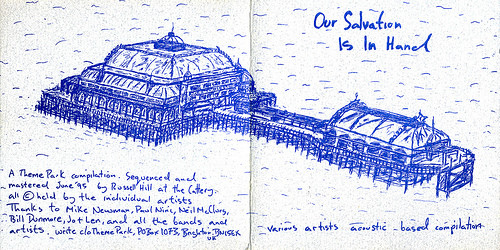 Our Salvation
Is In Hand
A Theme Park compilation. Sequenced and
mastered June '95 by Russell Hill at the Cattery.
all © held by the individual artists
Thanks to Mike Newman, Paul Nine, Neil McClors,
Bill Dunmore, Jo + Len, and all the bands and
artists. write c/o Theme Park, PO Box 1073, Brighton, BN1
UK
various artists acoustic-based compilation.